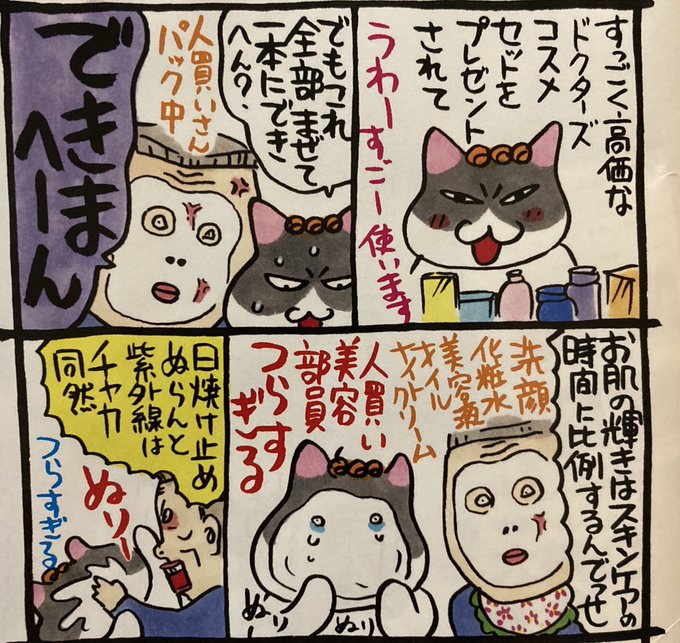 すっごく高価な
ドクターズ
コスメ
セットを
プレゼント
されて
うわーすごー使います
でもこれ
全部まぜて
一本にでき
へん?
人買いさん
パック中
できまへーん
お肌の輝きはスキンケアーの
時間に比例するんでっせ
洗顔
化粧水
美容液
オイル
ナイトクリーム
人買い
美容
部員
つらす
ぎる
ぬり
ぬり
日焼け止め
ぬらんと
紫外線は
チャカ
同然
ぬりー
つらすぎる